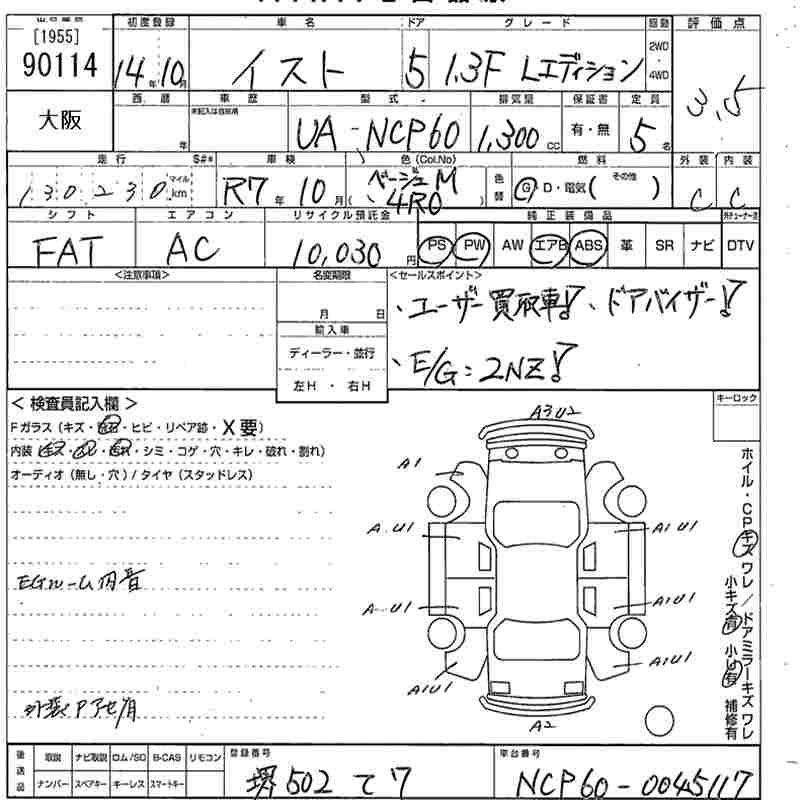 [1955]
90114
大阪
初度登録 車名 ドア グレード 駆動 評価点
14年10月 イスト 5 1.3F Lエディション 2WD・4WD 3.5
西暦 車歴 型式 排気量 保証書 定員
年 未記入は自家用 UA-NCP60 1,300cc 有・無 5名
走行 S#* 車検 色(Col.No) 燃料 外装 内装
130230 マイル km R7年10月 ( ベージュM 4R0 ) 色替 G・D・電気( その他 ) C C
シフト エアコン リサイクル預託金 純正装備品
FAT AC 10,030円 PS PW AW エアB ABS 革 SR ナビ DTV
<注意事項> 名変期限 <セールスポイント>
月 日
輸入車
ディーラー・並行
左H・右H
、ユーザー買取車! 、ドアバイザー!
、E/G:2NZ!
<検査員記入欄> キーロック
Fガラス(キズ・ ・ヒビ・リペア跡・X要)
内装( ・ ・ ・シミ・コゲ・穴・キレ・破れ・割れ)
オーディオ(無し・穴)/タイヤ(スタッドレス)
EGルーム内音
外装Pアセ有
A3U2
A1
A.U1 A1U1
A-U1 A1U1
A1U1 A1U1
A2
ホイル・CPキズ ワレ/ドアミラーキズ ワレ
小キズ有 小U有 補修有
後送品 取説 ナビ取説 ロム/SD B-CAS リモコン 登録番号 車台番号
ナンバー スペアキー キーレス スマートキー 堺502 て 7 NCP60-0045117